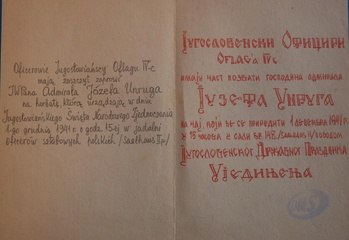 Oficerowie Jugosłowiańscy Oflagu IV-c
mają zaszczyt zaprosić
JWPana Admirała Józefa Unruga
na herbatę, którą urządzają w dniu
Jugosłowiańskiego Święta Narodowego Zjednoczenia
1-go grudnia 1941 o godz. 15-ej w jadalni
oficerów sztabowych polskich /Saalhaus
Југословенски Официри
Офлага IV-c
имају част позвати господина адмирала
Јузефа Унруга
на чај који ће се приредити 1 децембра 1941 г.
у 15 часова у сали бр.
Југословенског Државног Празника
Уједињења